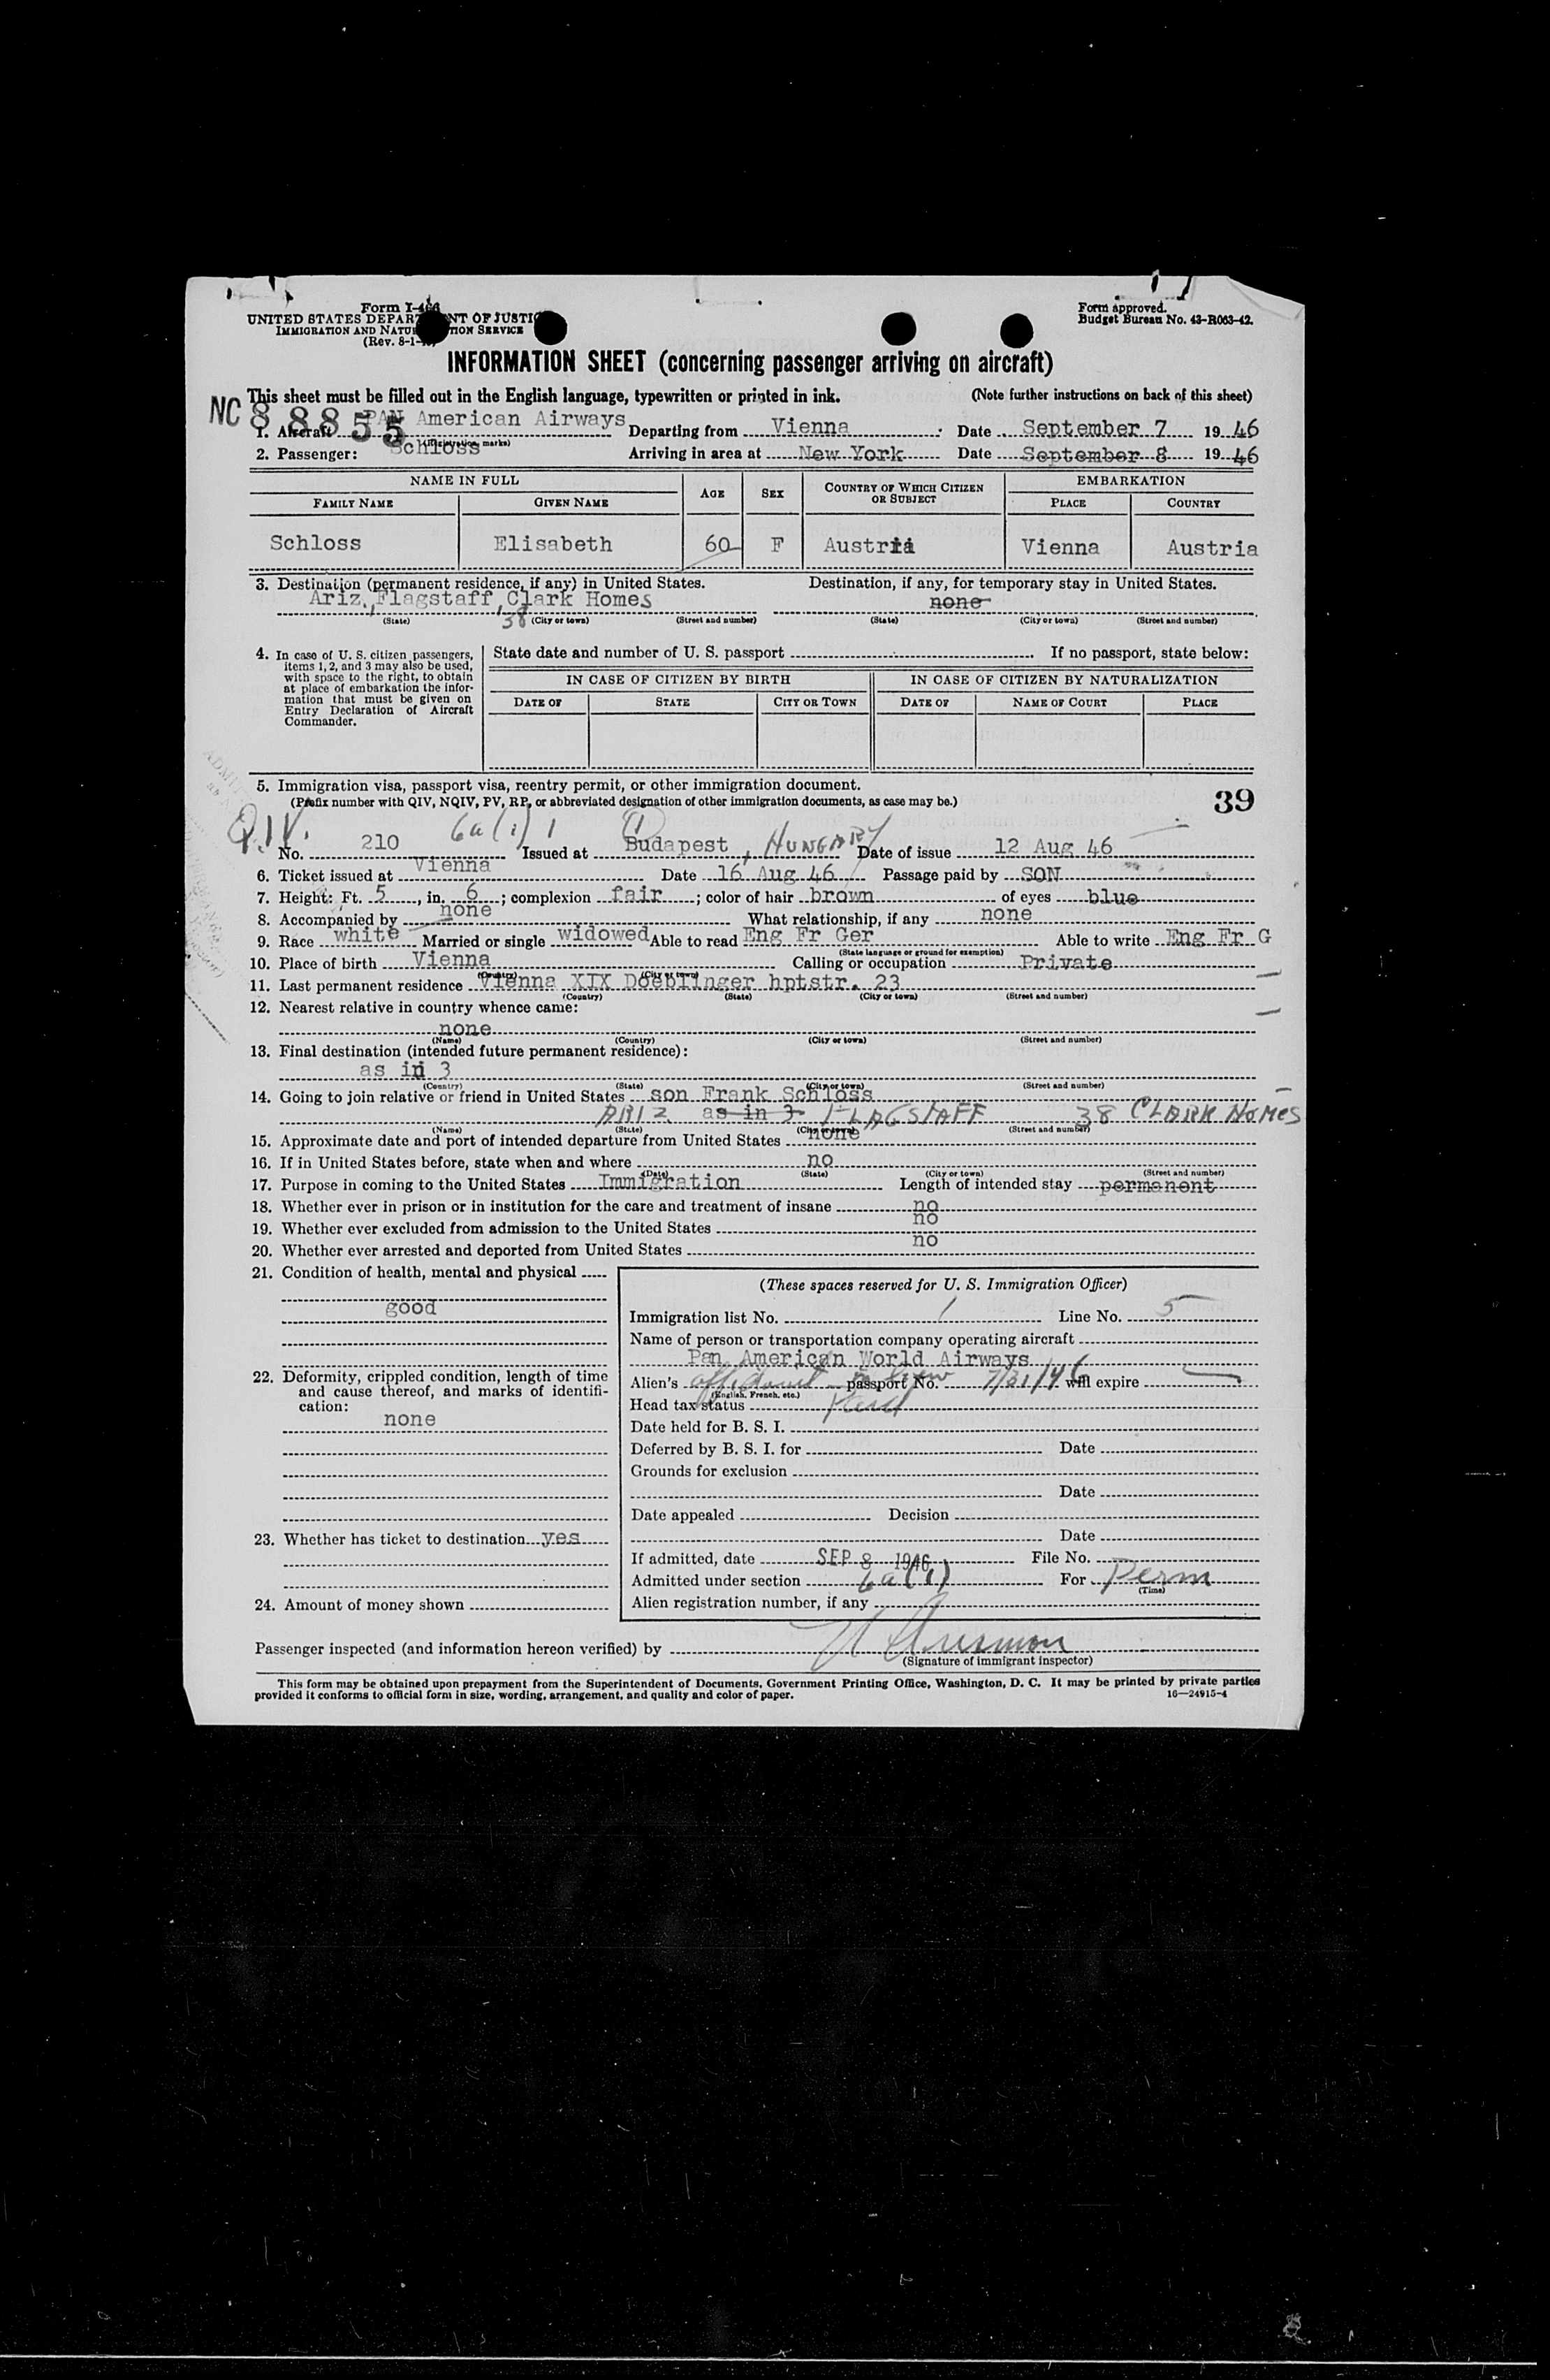 Form I-466
UNITED STATES DEPARTMENT OF JUSTICE
IMMIGRATION AND NATURALIZATION SERVICE
(Rev. 8-1-
Form approved.
Budget Bureau No. 43-R063-42.
INFORMATION SHEET (concerning passenger arriving on aircraft)
This sheet must be filled out in the English language, typewritten or printed in ink. (Note further instructions on back of this sheet)
NC 88855
1. Aircraft PAN American Airways Departing from Vienna Date September 7 1946
2. Passenger: Schloss Arriving in area at New York Date September 8 1946
NAME IN FULL AGE SEX COUNTRY OF WHICH CITIZEN OR SUBJECT EMBARKATION
FAMILY NAME GIVEN NAME PLACE COUNTRY
Schloss Elisabeth 60 F Austria Vienna Austria
3. Destination (permanent residence, if any) in United States. Destination, if any, for temporary stay in United States.
Ariz., Flagstaff, Clark Homes none
38
(State) (City or town) (Street and number) (State) (City or town) (Street and number)
4. In case of U. S. citizen passengers, items 1, 2, and 3 may also be used, with space to the right, to obtain at place of embarkation the information that must be given on Entry Declaration of Aircraft Commander.
State date and number of U. S. passport If no passport, state below:
IN CASE OF CITIZEN BY BIRTH IN CASE OF CITIZEN BY NATURALIZATION
DATE OF STATE CITY OR TOWN DATE OF NAME OF COURT PLACE
5. Immigration visa, passport visa, reentry permit, or other immigration document.
(Prefix number with QIV, NQIV, PV, RP, or abbreviated designation of other immigration documents, as case may be.) 39
Q.I.V. 6a(1) 1 (1)
No. 210 Issued at Budapest, HUNGARY Date of issue 12 Aug 46
6. Ticket issued at Vienna Date 16 Aug 46 Passage paid by SON
7. Height: Ft. 5, in. 6; complexion fair; color of hair brown of eyes blue
8. Accompanied by none What relationship, if any none
9. Race white Married or single widowed Able to read Eng Fr Ger Able to write Eng Fr G
(State language or ground for exemption)
10. Place of birth Vienna Calling or occupation Private
(Country) (City or town)
11. Last permanent residence Vienna XIX Doeblinger hptstr. 23
(Country) (State) (City or town) (Street and number)
12. Nearest relative in country whence came:
none
(Name) (Country) (City or town) (Street and number)
13. Final destination (intended future permanent residence):
as in 3
(Country) (State) (City or town) (Street and number)
14. Going to join relative or friend in United States son Frank Schloss
ARIZ as in 3 FLAGSTAFF 38 CLARK HOMES
(Name) (State) (City or town) (Street and number)
15. Approximate date and port of intended departure from United States none
16. If in United States before, state when and where no
(Date) (State) (City or town) (Street and number)
17. Purpose in coming to the United States Immigration Length of intended stay permanent
18. Whether ever in prison or in institution for the care and treatment of insane no
19. Whether ever excluded from admission to the United States no
20. Whether ever arrested and deported from United States no
21. Condition of health, mental and physical
good
22. Deformity, crippled condition, length of time and cause thereof, and marks of identification:
none
23. Whether has ticket to destination yes
24. Amount of money shown
(These spaces reserved for U. S. Immigration Officer)
Immigration list No. 1 Line No. 5
Name of person or transportation company operating aircraft
Pan American World Airways
Alien's affidavit passport No. 7/31/46 will expire
(English, French, etc.)
Head tax status Paid
Date held for B. S. I.
Deferred by B. S. I. for Date
Grounds for exclusion
Date
Date appealed Decision
Date
If admitted, date SEP 8 1946 File No.
Admitted under section 6a(1) For Perm
(Time)
Alien registration number, if any
Passenger inspected (and information hereon verified) by
(Signature of immigrant inspector)
This form may be obtained upon prepayment from the Superintendent of Documents, Government Printing Office, Washington, D. C. It may be printed by private parties
provided it conforms to official form in size, wording, arrangement, and quality and color of paper. 16—24915-4